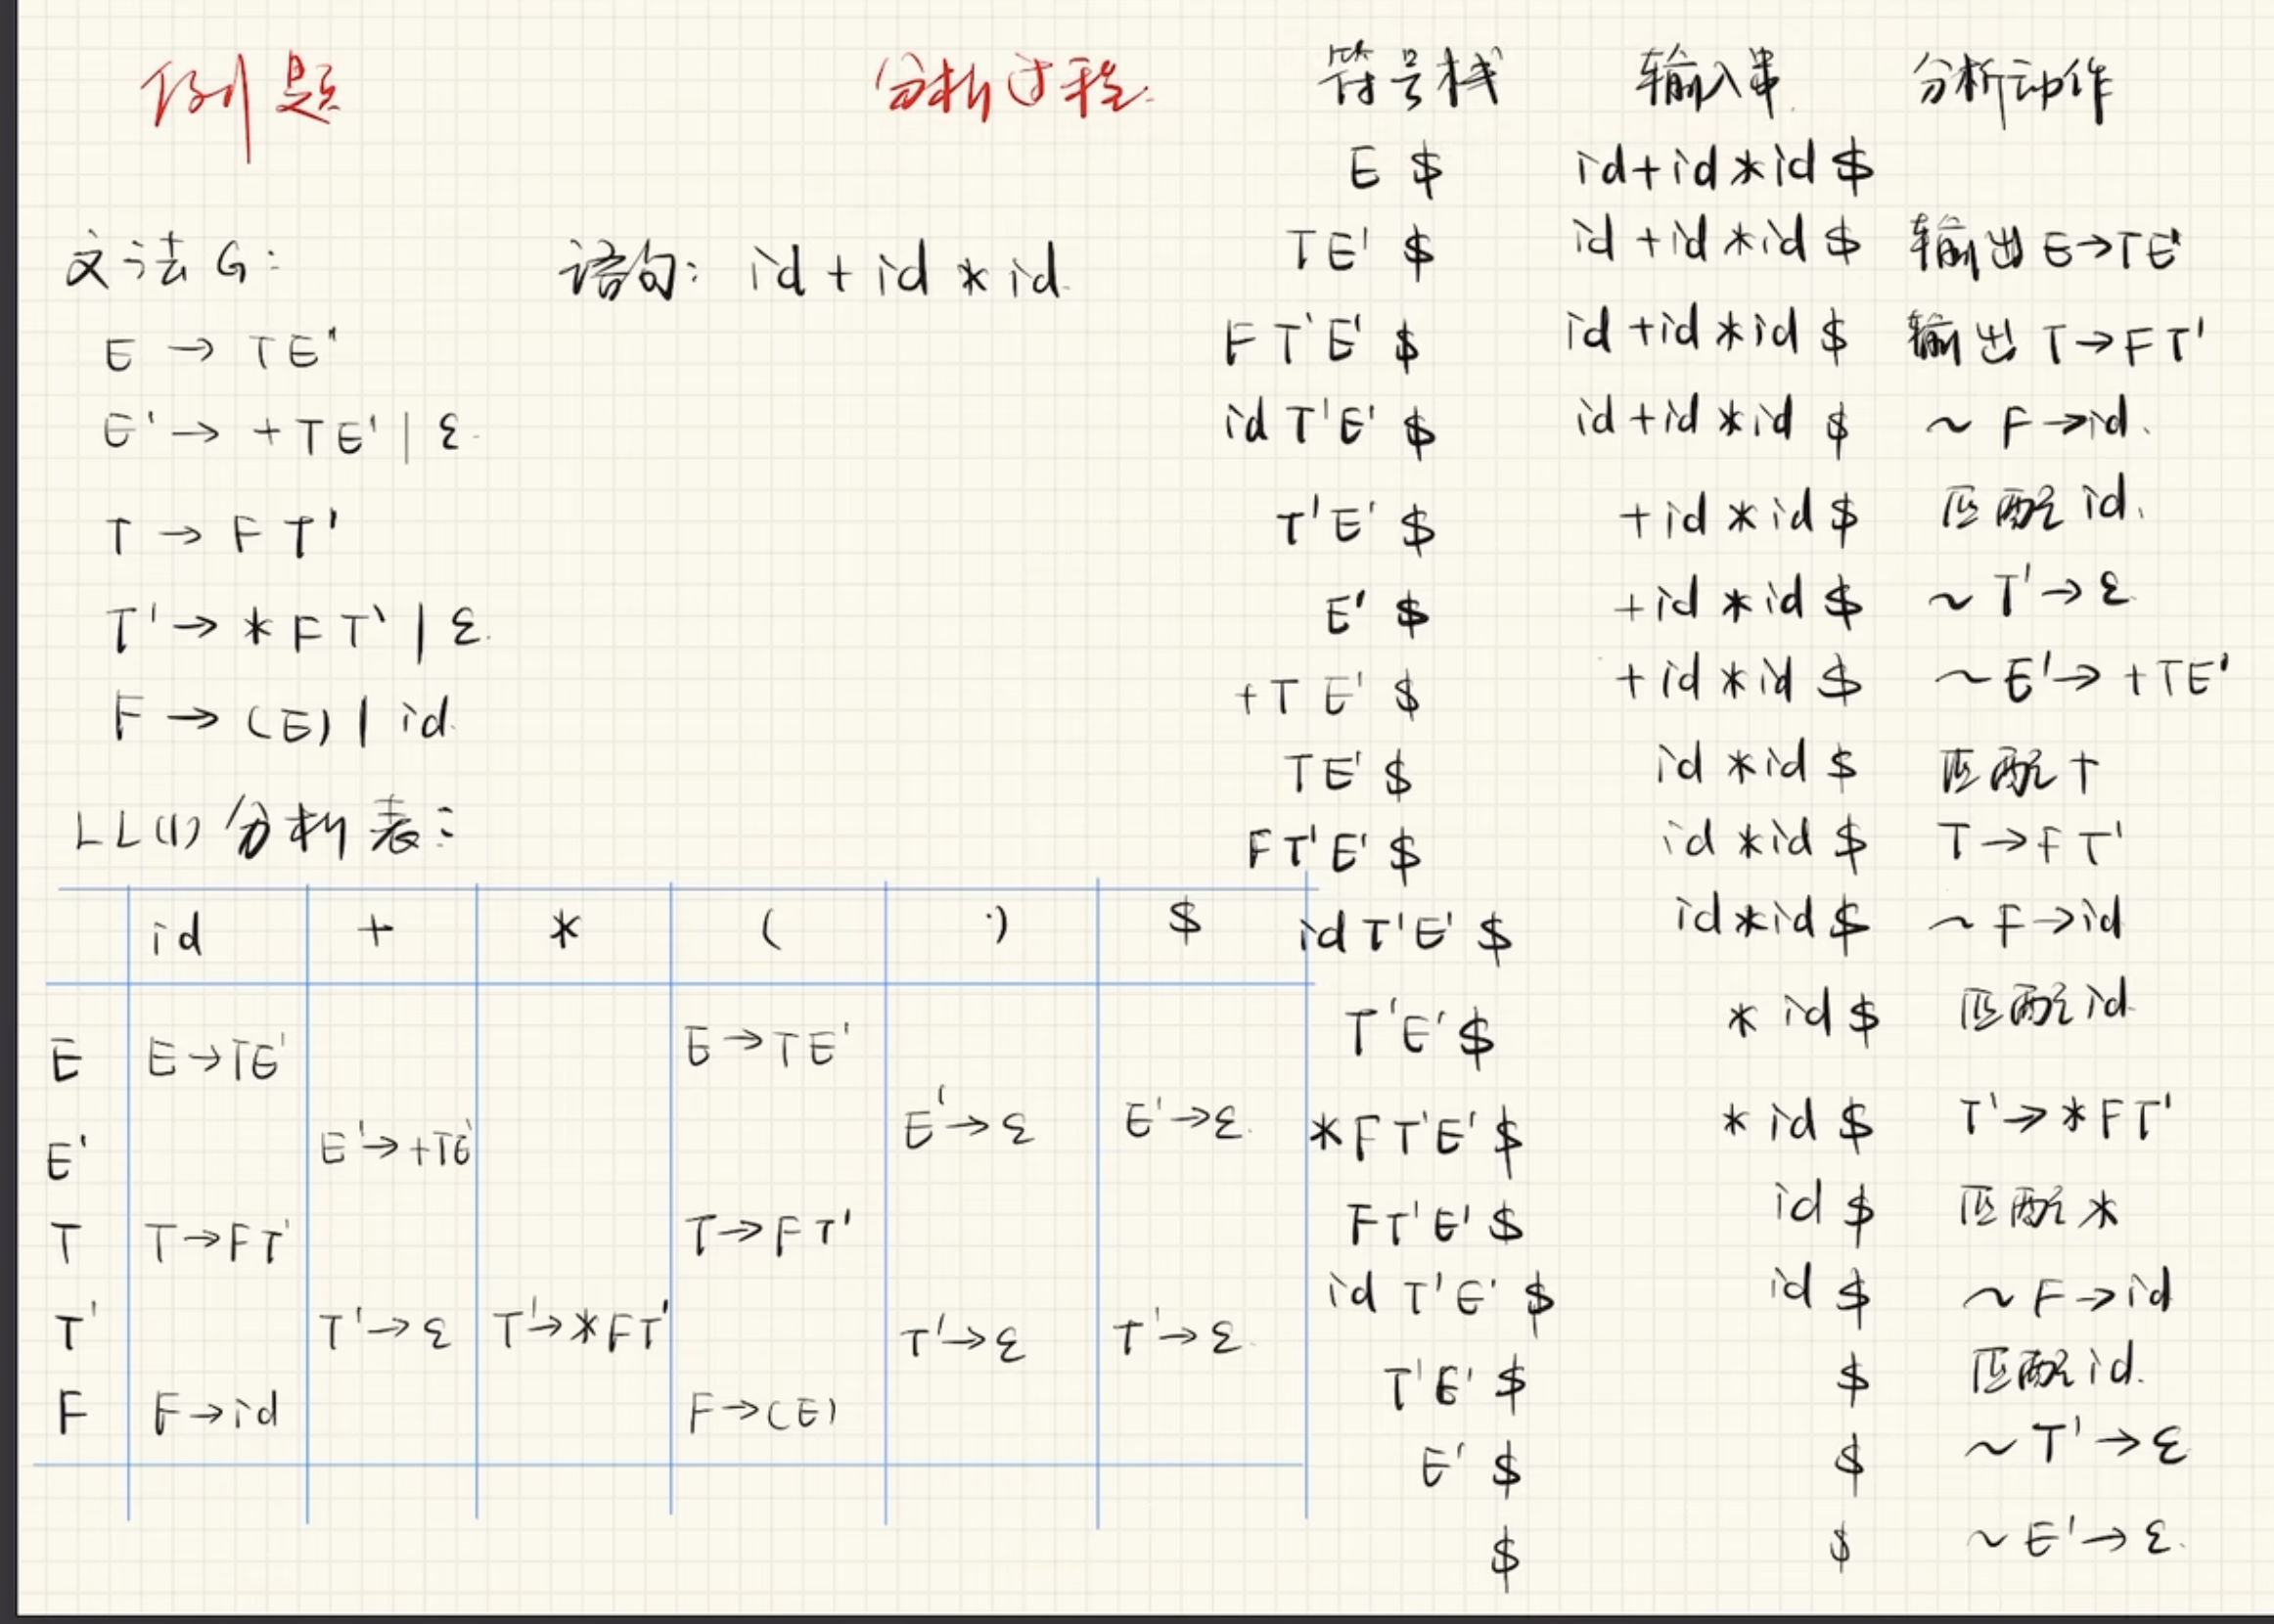 例题
文法 G:
E → TE'
E' → +TE' | ε
T → FT'
T' → *FT' | ε
F → (E) | id
语句: id + id * id
LL(1) 分析表:
id + * ( ) $
E E→TE' E→TE'
E' E'→+TE' E'→ε E'→ε
T T→FT' T→FT'
T' T'→ε T'→*FT' T'→ε T'→ε
F F→id F→(E)
分析过程
符号栈 输入串 分析动作
E $ id+id*id $
TE' $ id+id*id $ 输出 E→TE'
FT'E' $ id+id*id $ 输出 T→FT'
id T'E' $ id+id*id $ ~ F→id.
T'E' $ +id*id $ 匹配 id.
E' $ +id*id $ ~ T'→ε
+TE' $ +id*id $ ~ E'→+TE'
TE' $ id*id $ 匹配 +
FT'E' $ id*id $ T→FT'
id T'E' $ id*id $ ~ F→id
T'E' $ * id $ 匹配 id
*FT'E' $ * id $ T'→*FT'
FT'E' $ id $ 匹配 *
id T'E' $ id $ ~ F→id
T'E' $ $ 匹配 id.
E' $ $ ~ T'→ε
$ $ ~ E'→ε.